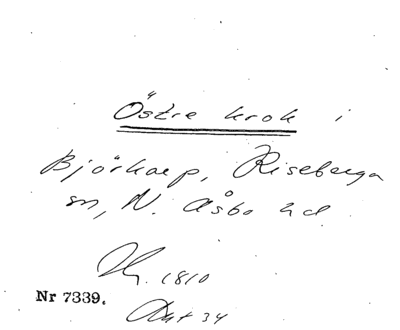 Östre krok i
Björkarp, Riseberga
sn, N. Åsbo hd
1810
Nr 7339.
Akt 34